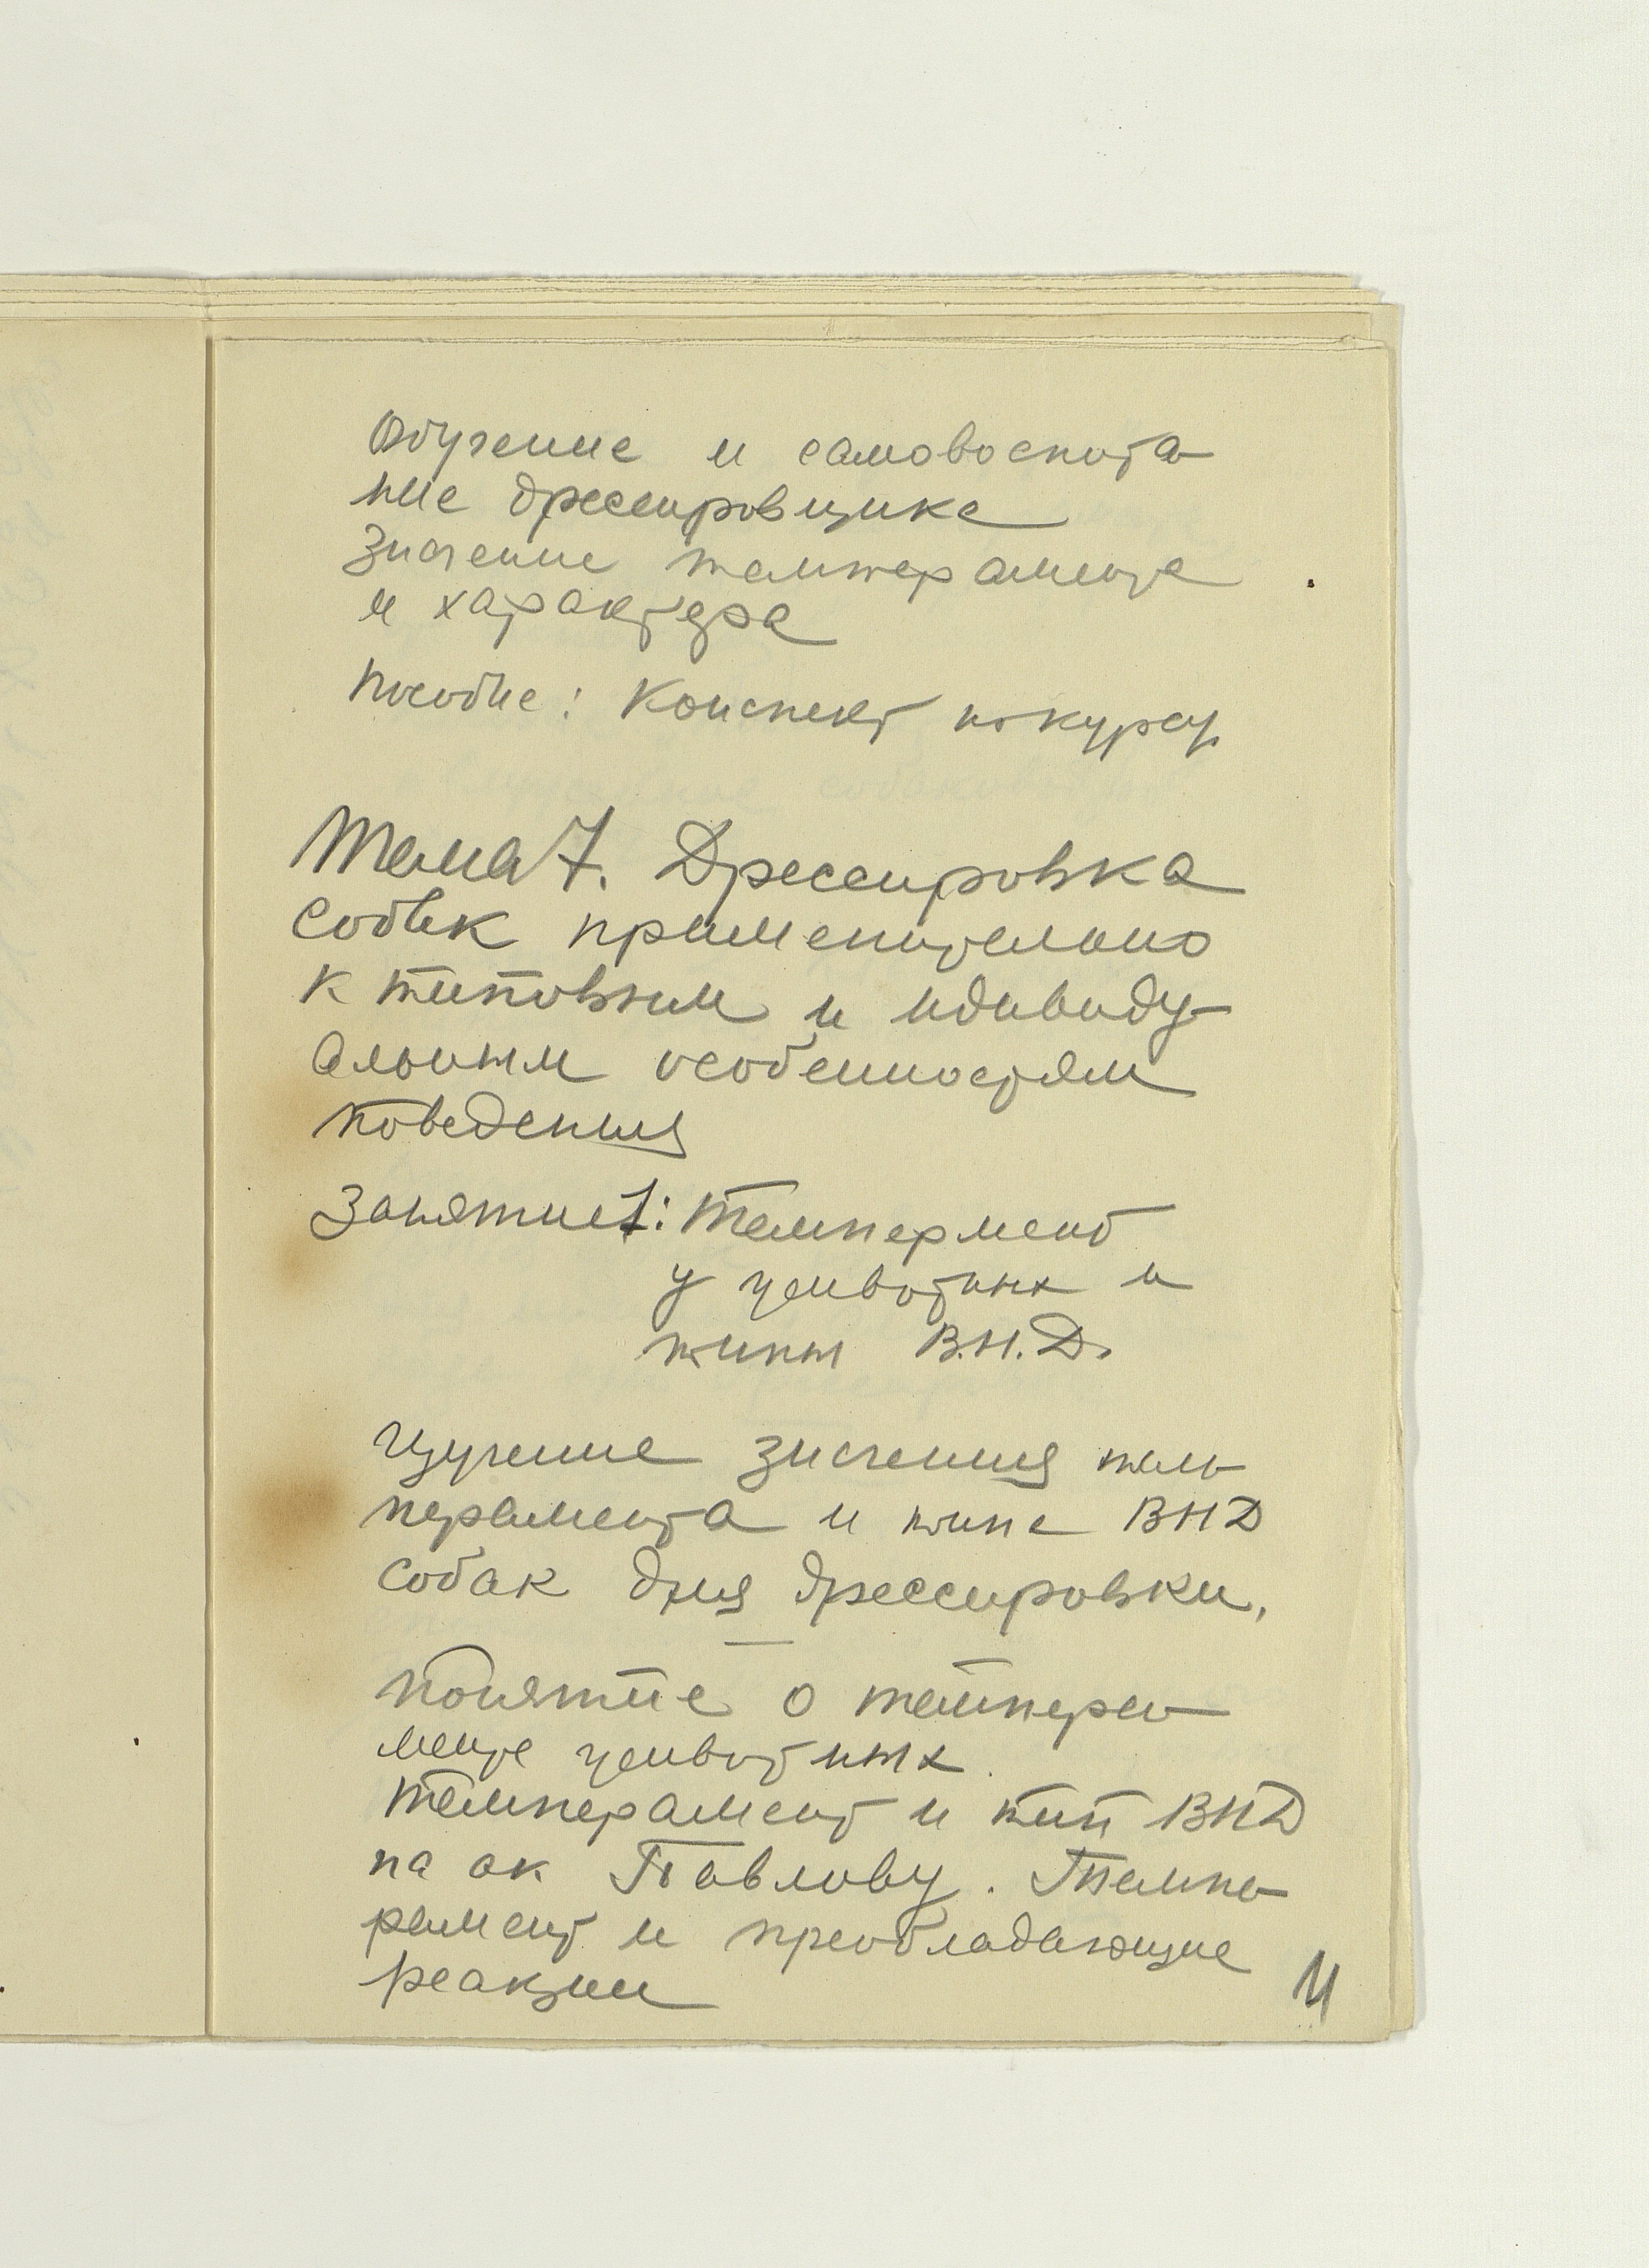 Обучение и самовоспита
ние дрессировщика
Значение темперамента
и характера
Пособие: Конспект по курсу
Тема 7. Дрессировка
собак применительно
к типовым и идивиду-
альным особенностям
поведения
Занятие 1: Темпермент
у животных и
типы В.Н.Д.
Изучение значения тем
перамента и типа ВНД
собак для дрессировки.
Понятие о темпера
менте животных.
Темперамент и тип ВНД
по ак Павлову. Темпе
рамент и преобладающие
реакции